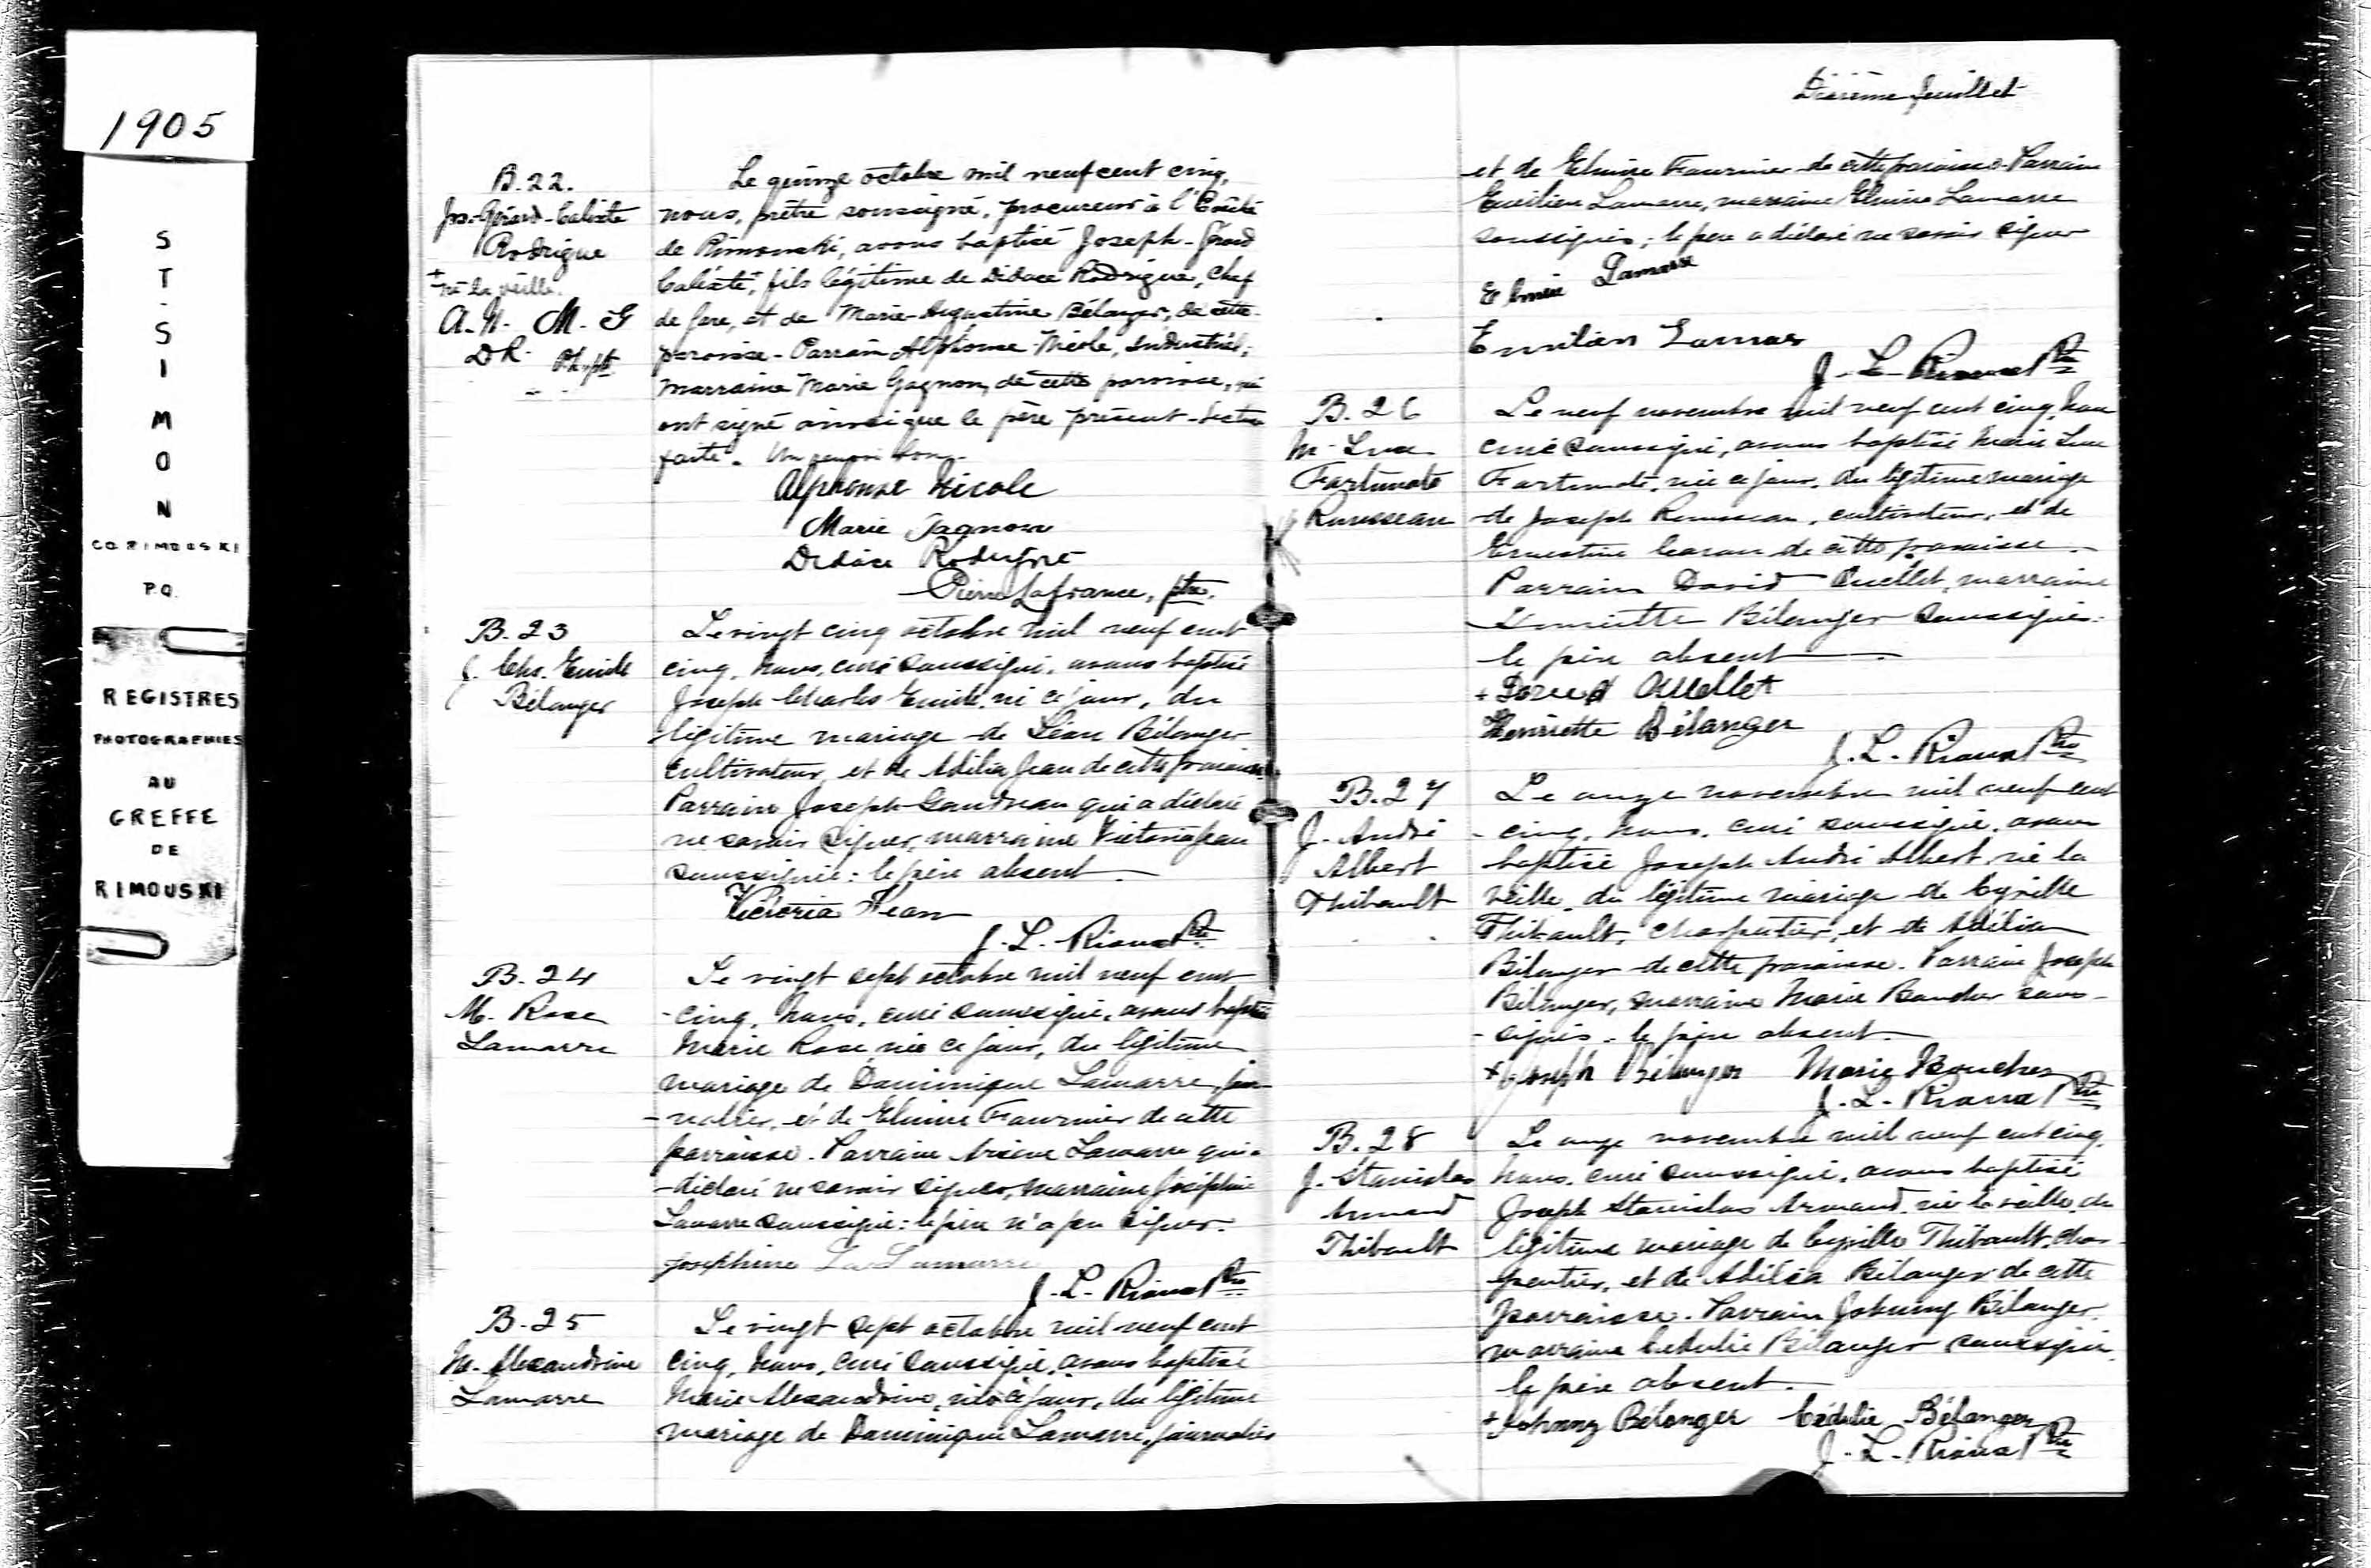 1905
ST-SIMON
CO. RIMOUSKI
P.Q.
REGISTRES
PHOTOGRAPHIES
AU
GREFFE
DE
RIMOUSKI
B.22.
Jos.-Gérard-Calixte
Rodrigue
+ né la veille.
A.N. M.G
D R. P.L. ptr
Le quinze octobre mil neuf cent cinq,
nous, prêtre soussigné, procureur à l'Evêché
de Rimouski, avons baptisé Joseph-Gérard
Calixte,+ fils légitime de Didace Rodrigue, Chef
de gare, et de Marie-Augustine Bélanger, de cette
paroisse - Parrain Alphonse Nicole, industriel;
marraine Marie Gagnon, de cette paroisse, qui
ont signé ainsi que le père présent - Lecture
faite. Un renvoi bon.
Alphonse Nicole
Marie Gagnon
Didace Rodrigue
Pierre Lafrance, ptre.
B.23
J. Chs. Emile
Bélanger
Le vingt cinq octobre mil neuf cent
cinq, nous, curé soussigné, avons baptisé
Joseph Charles Emile, né ce jour, du
légitime mariage de Léon Bélanger
cultivateur, et de Adélia Jean de cette paroisse.
Parrain Joseph Gaudreau qui a déclaré
ne savoir signer, marraine Victoria Jean
soussignée: le père absent.
Victoria Jean
J.-L. Rioux Ptre
B.24
M. Rose
Lamarre
Le vingt sept octobre mil neuf cent
cinq, nous, curé soussigné, avons baptisé
Marie Rose, née ce jour, du légitime
mariage de Dominique Lamarre, jour-
-nalier, et de Elmire Fournier de cette
parroisse. Parrain Arsène Lamarre qui a
déclaré ne savoir signer, marraine Joséphine
Lamarre soussignée: le père n'a pu signer.
Josephine La Lamarre
J.-L. Rioux Ptre
B.25
M. Alexandrine
Lamarre
Le vingt sept octobre mil neuf cent
cinq, nous, curé soussigné, avons baptisé
Marie Alexandrine, née ce jour, du légitime
mariage de Dominique Lamarre, journalier
Dixième feuillet
et de Elmire Fournier de cette paroisse. Parrain
Emilien Lamarre, marraine Elmire Lamarre
soussignés; le père a déclaré ne savoir signer
Elmire Lamarre
Emilien Lamar
J.-L. Rioux Ptre
B.26
M. Luce
Fortunate
Rousseau
Le neuf novembre mil neuf cent cinq, nous
curé soussigné, avons baptisé Marie Luce
Fortunate, née ce jour, du légitime mariage
de Joseph Rousseau, cultivateur, et de
Ernestine Caron de cette paroisse.
Parrain David Ouellet, marraine
Henriette Bélanger soussignés:
le père absent
+ David Ouellet
Henriette Bélanger
J.L. Rioux Ptre
B.27
J. André
Albert
Thibault
Le onze novembre mil neuf cent
cinq, nous, curé soussigné, avons
baptisé Joseph André Albert, né la
veille, du légitime mariage de Cyrille
Thibault, charpentier, et de Adélia
Bélanger de cette paroisse. Parrain Joseph
Bélanger, marraine Marie Boucher sous-
-signés: le père absent.
+ Joseph Bélanger Marie Boucher
J.-L. Rioux Ptre
B.28
J. Stanislas
Armand
Thibault
Le onze novembre mil neuf cent cinq,
nous, curé soussigné, avons baptisé
Joseph Stanislas Armand, né la veille, du
légitime mariage de Cyrille Thibault, char-
pentier, et de Adélia Bélanger de cette
parroisse. Parrain Johnny Bélanger,
marraine Cédulie Bélanger soussignés.
le père absent.
+ Johnny Bélanger Cédulie Bélanger
J.-L. Rioux Ptre